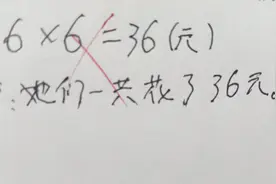 6×6=36(元)
:她们一共花了36元。